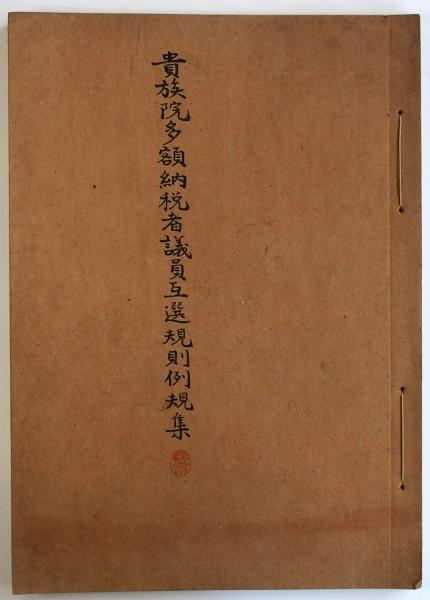 貴族院多額納税者議員互選規則例規集